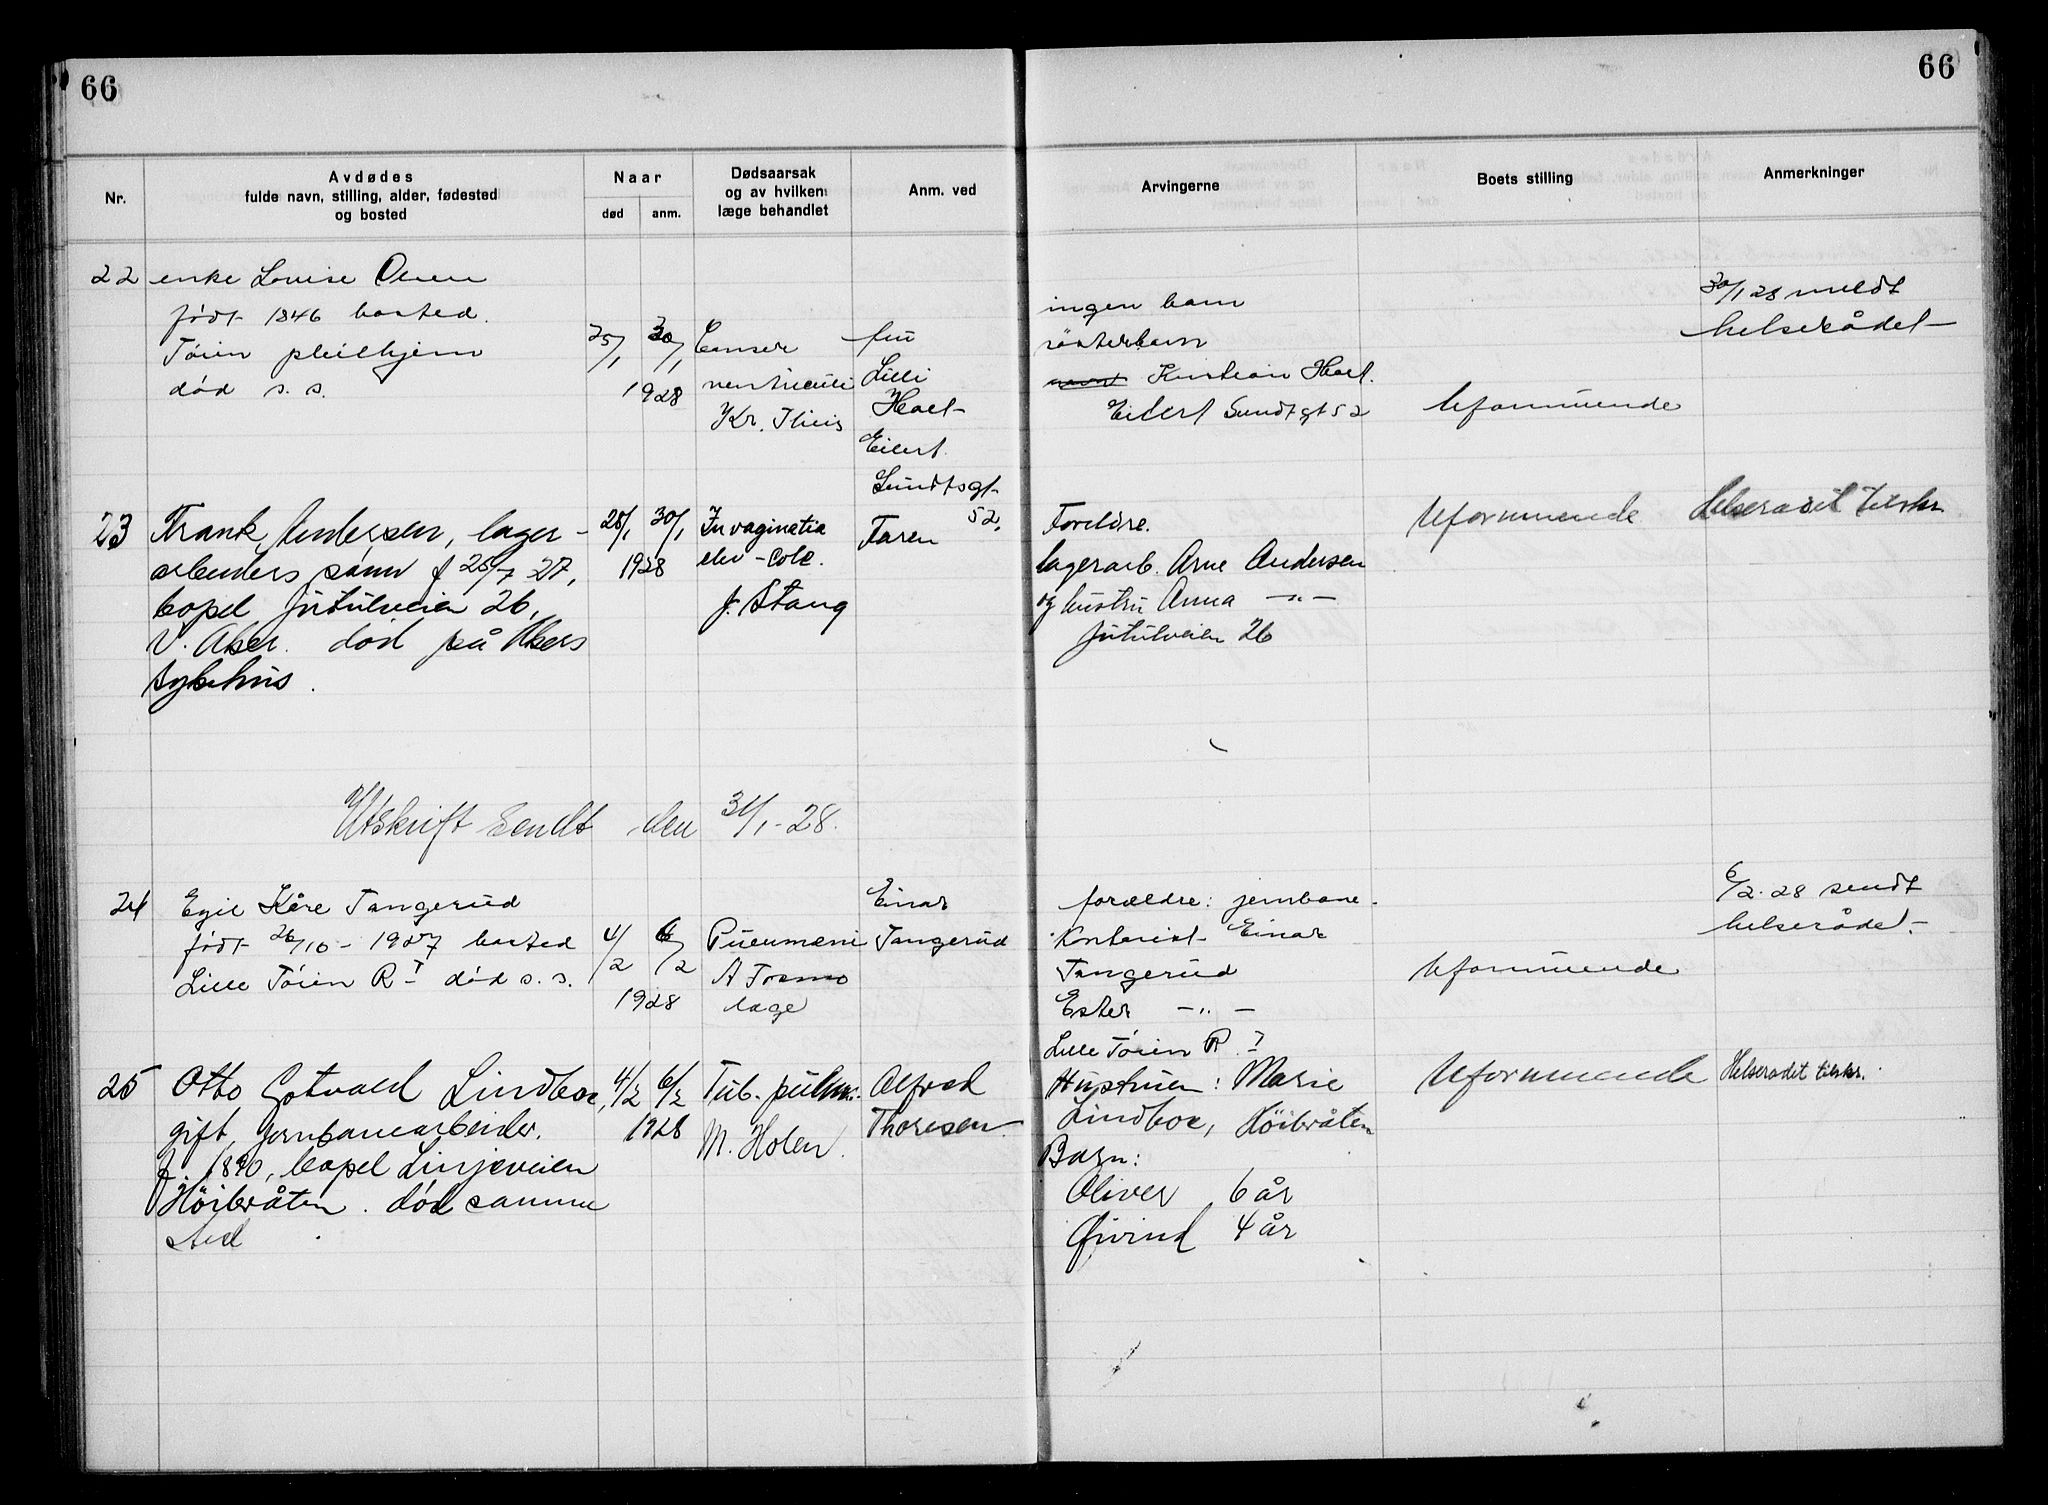 66
66
Nr.
Avdødes
fulde navn, stilling, alder, fødested
og bosted
Naar
død
anm.
Dødsaarsak
og av hvilken
læge behandlet
Anm. ved
Arvingerne
Boets stilling
Anmerkninger
22
enke Louise Olsen
født 1846 bosted.
Tøien pleihjem
død s. s.
25/1
30/1
1928
Canser
ventriculi
Kr. Thiis
fru
Lilli
Hoel
Eilert
Sundtsgt
52.
ingen barn
søsterbarn
Kristian Hoel.
Eilert Sundtgt 52
Uformuende
30/1 28 meldt
helserådet
23
Frank Andersen, lager-
arbeiders sønn f 25/7 27,
bopel Jutulveien 26,
V. Aker. død på Akers
sykehus.
28/1
30/1
1928
Invaginatio
J. Stang
Faren
Foreldre.
lagerarb. Arne Andersen
og hustru Anna —„—
Jutulveien 26
Uformuende
Helserådet tilskr.
Utskrift sendt den 31/1-28.
24
Egil Kåre Tangerud
født 26/10 - 1927 bosted
Lille Tøien R I død s. s.
4/2
6/2
1928
Pneumoni
læge
Einar
Tangerud
forældre: jernbane-
kontorist Einar
Tangerud
Ester —„—
Lille Tøien R. I
Uformuende
6/2-28 sendt
helserådet.
25
Otto Gotvald Lindboe,
gift, jernbanearbeider.
f. 1890, bopel Linjeveien
Høibråten. død samme
sted
4/2
6/2
1928
Tub. pulm.
M. Holen.
Alfred
Thoresen.
Hustruen: Marie
Lindboe, Høibråten
Barn:
Oliver 6 år
Øivind 4 år
Uformuende
Helserådet tilskr.